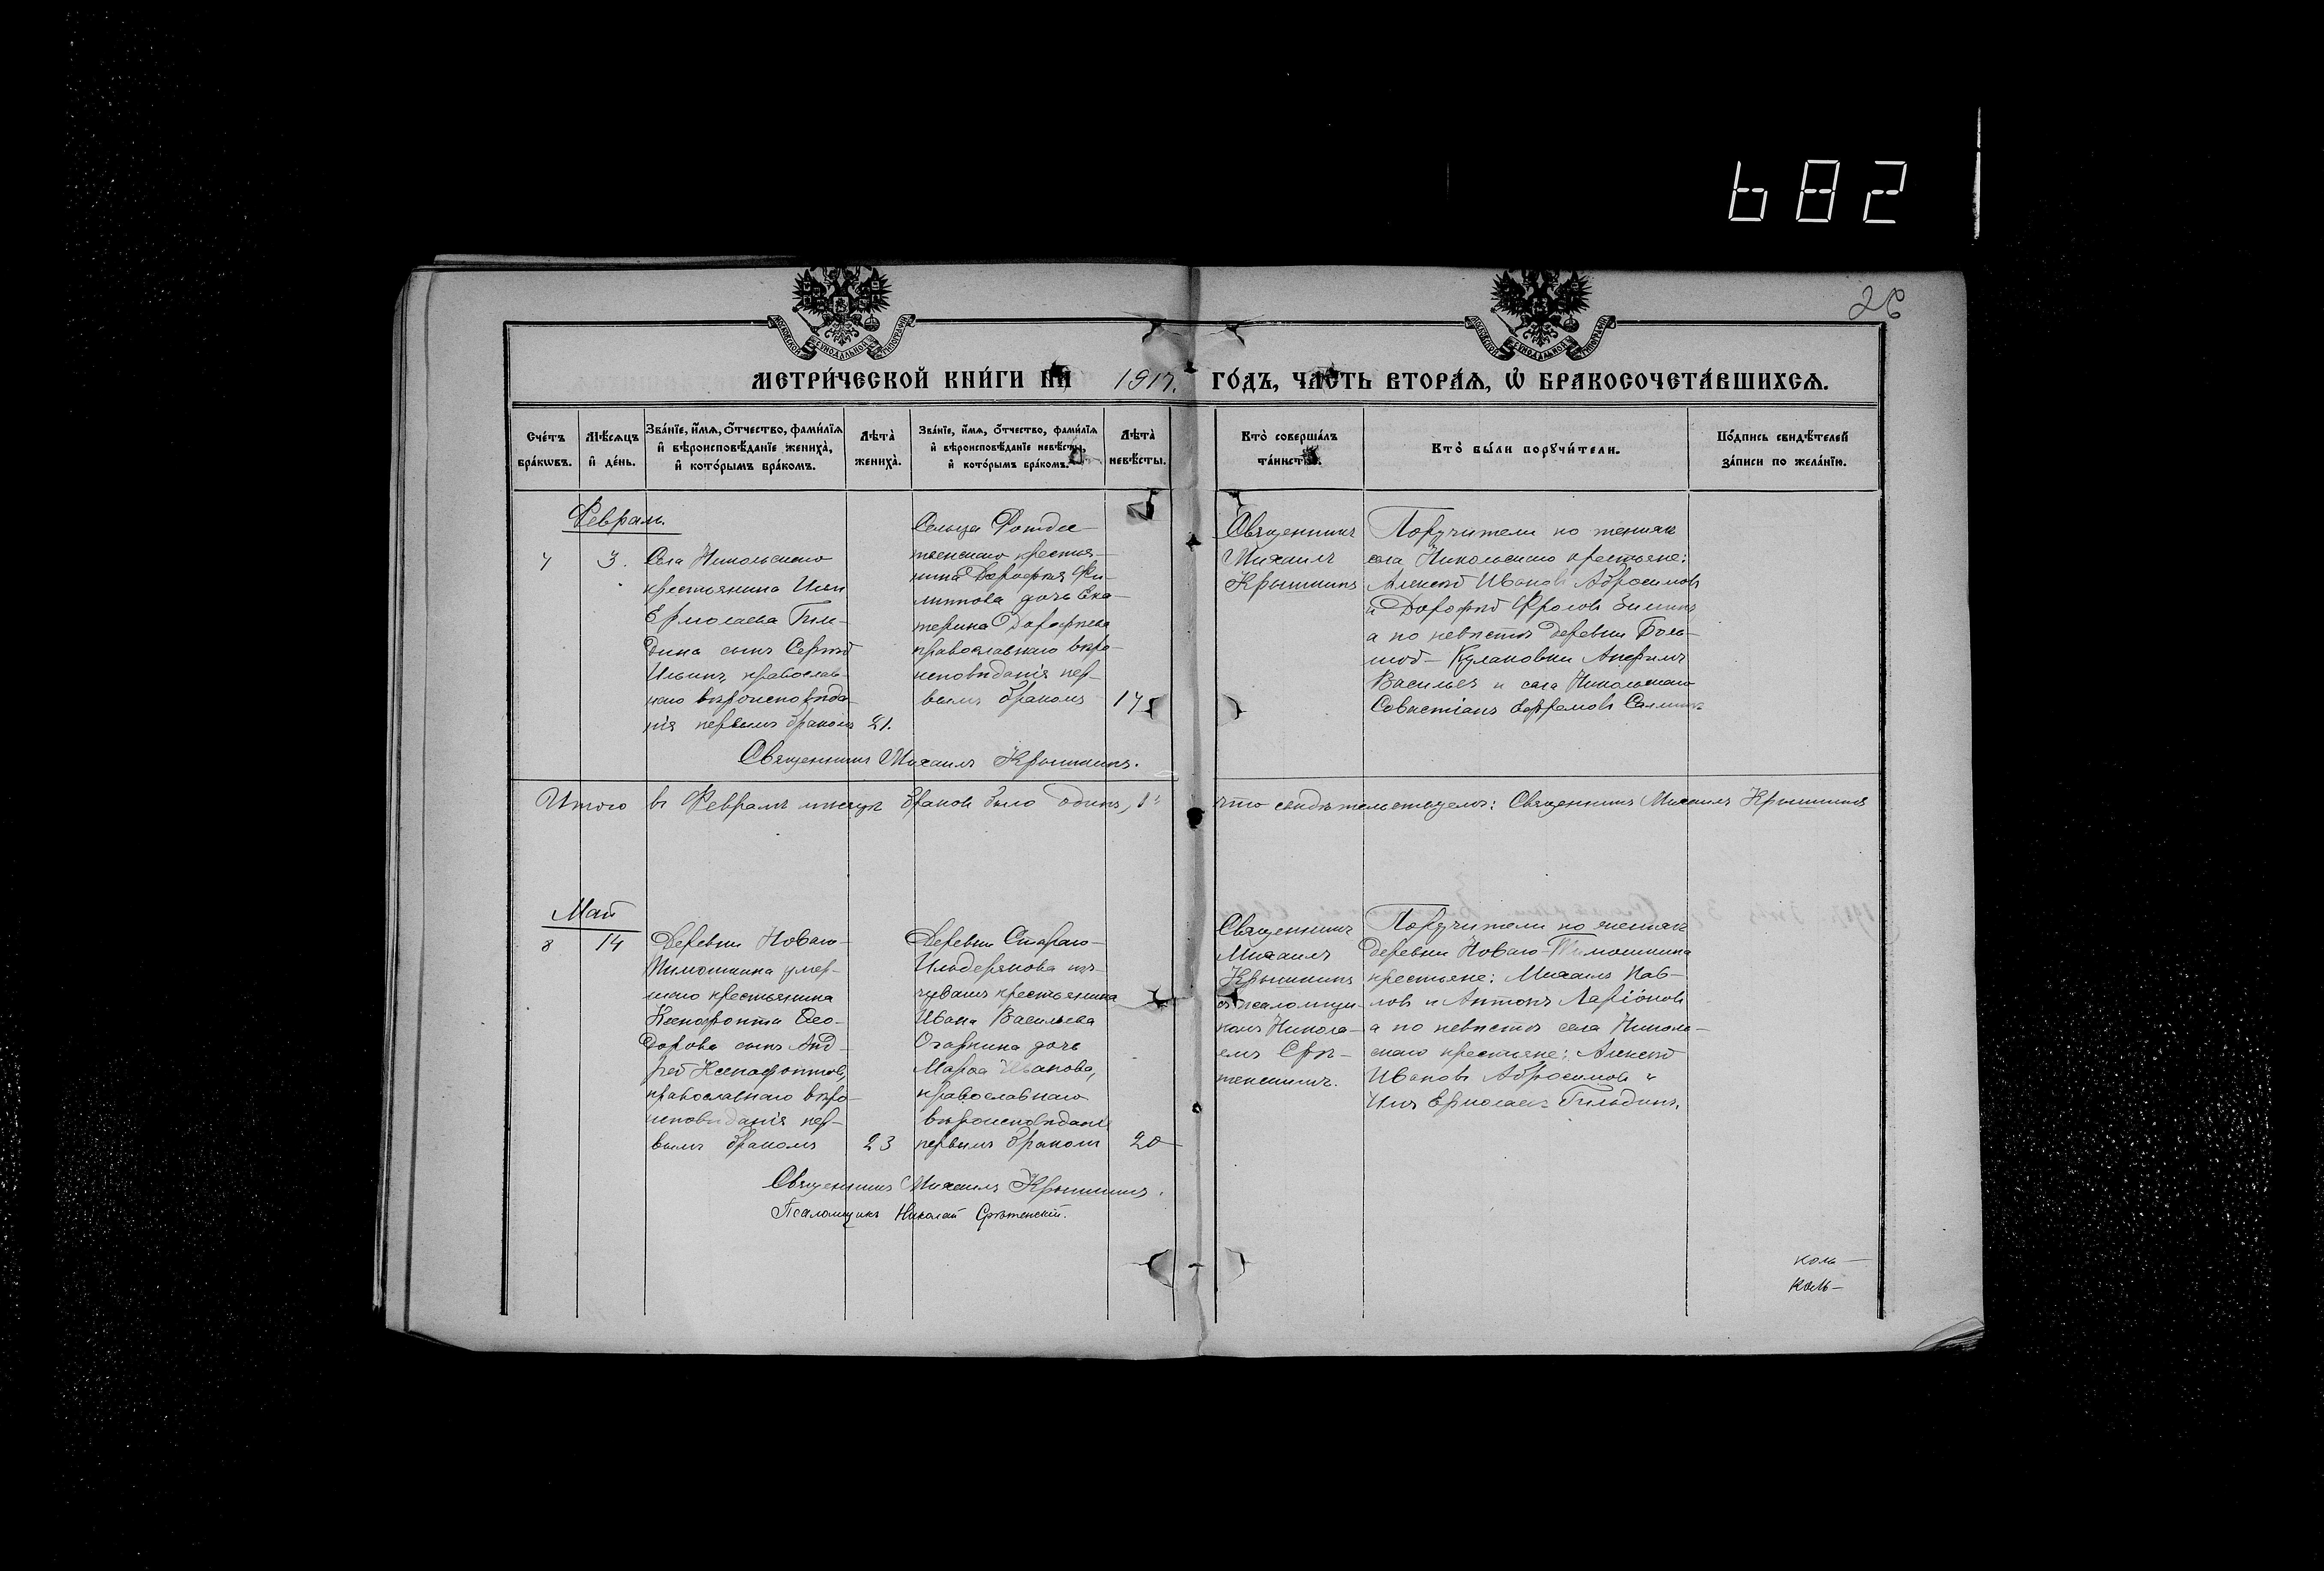 682
26
МОСКОВСКОЙ СѴНОДАЛЬНОЙ ТИПОГРАФІИ
МОСКОВСКОЙ СѴНОДАЛЬНОЙ ТИПОГРАФІИ
МЕТРИ́ЧЕСКОЙ КНИ́ГИ НА̀ 1917. ГО́ДЪ, ЧА́СТЬ ВТОРА́Ѧ, Ѽ БРАКОСОЧЕТА́ВШИХСѦ.
Сче́тъ бра́кѡвъ.
Мѣ́сѧцъ и҆ де́нь.
Зва́нїе, и҆́мѧ, о҆́тчество, фами́лїѧ
и҆ вѣроисповѣ́данїе жениха̀,
и҆ кото́рымъ бра́комъ.
Лѣта̀ жениха̀.
Зва́нїе, и҆́мѧ, о҆́тчество, фами́лїѧ
и҆ вѣроисповѣ́данїе невѣ́сты,
и҆ кото́рымъ бра́комъ.
Лѣта̀ невѣ́сты.
Кто̀ соверша́лъ
та́инство.
Кто̀ бы́ли порꙋчи́тели.
По́дпись свидѣ́телей
за́писи по жела́нїю.
Феврал.
7
3.
Села Никольскаго
крестьянина Ильи
Ермолаева Гиль-
дина сынъ Сергѣй
Ильинъ, православ-
наго вѣроисповѣда-
нія первымъ бракомъ
21.
Сельца Рожде-
твенскаго крестья-
нина Дорофея Фи-
липпова дочь Ека-
терина Дорофеева
православнаго вѣро-
исповѣданія пер-
вымъ бракомъ
17
Священникъ
Михаилъ
Крышкинъ
Поручители по женихѣ
села Никольскаго крестьяне:
Алексѣй Ивановъ Абросимовъ
и Дорофѣй Фроловъ Зиминъ
а по невѣстѣ деревни Боль-
шой-Кулаковки Анфимъ
Васильевъ и села Никольскаго
Севастіанъ Ефремовъ
Священникъ Михаилъ Крышкинъ.
Итого въ Февралѣ мѣсяцѣ браковъ было одинъ, 1. что свидѣтельствуемъ: Священникъ Михаилъ Крышкинъ
Май
8
14
Деревни Новаго-
Тимошкина умер-
шаго крестьянина
Ксенофонта Ѳео-
дорова сынъ Анд-
рей Ксенофонтовъ,
православнаго вѣро-
исповѣданія пер-
вымъ бракомъ
23
Деревни Стараго-
Ильдерякова изъ
чувашъ крестьянина
Ивана Васильева
Огаркина дочь
Марѳа Иванова,
православнаго
вѣроисповѣданія
первымъ бракомъ
20
Священникъ
Михаилъ
Крышкинъ
съ псаломщи-
комъ Никола-
емъ Срѣ-
тенскимъ.
Поручители по женихѣ
деревни Новаго-Тимошкина
крестьяне: Михаилъ Пав-
ловъ и Антонъ Ларіоновъ
а по невѣстѣ села Николь-
скаго крестьяне: Алексѣй
Ивановъ Абросимовъ и
Илія Ермолаевъ Гильдинъ.
Священникъ Михаилъ Крышкинъ.
Псаломщикъ Николай Срѣтенскій.
коль-
коль-